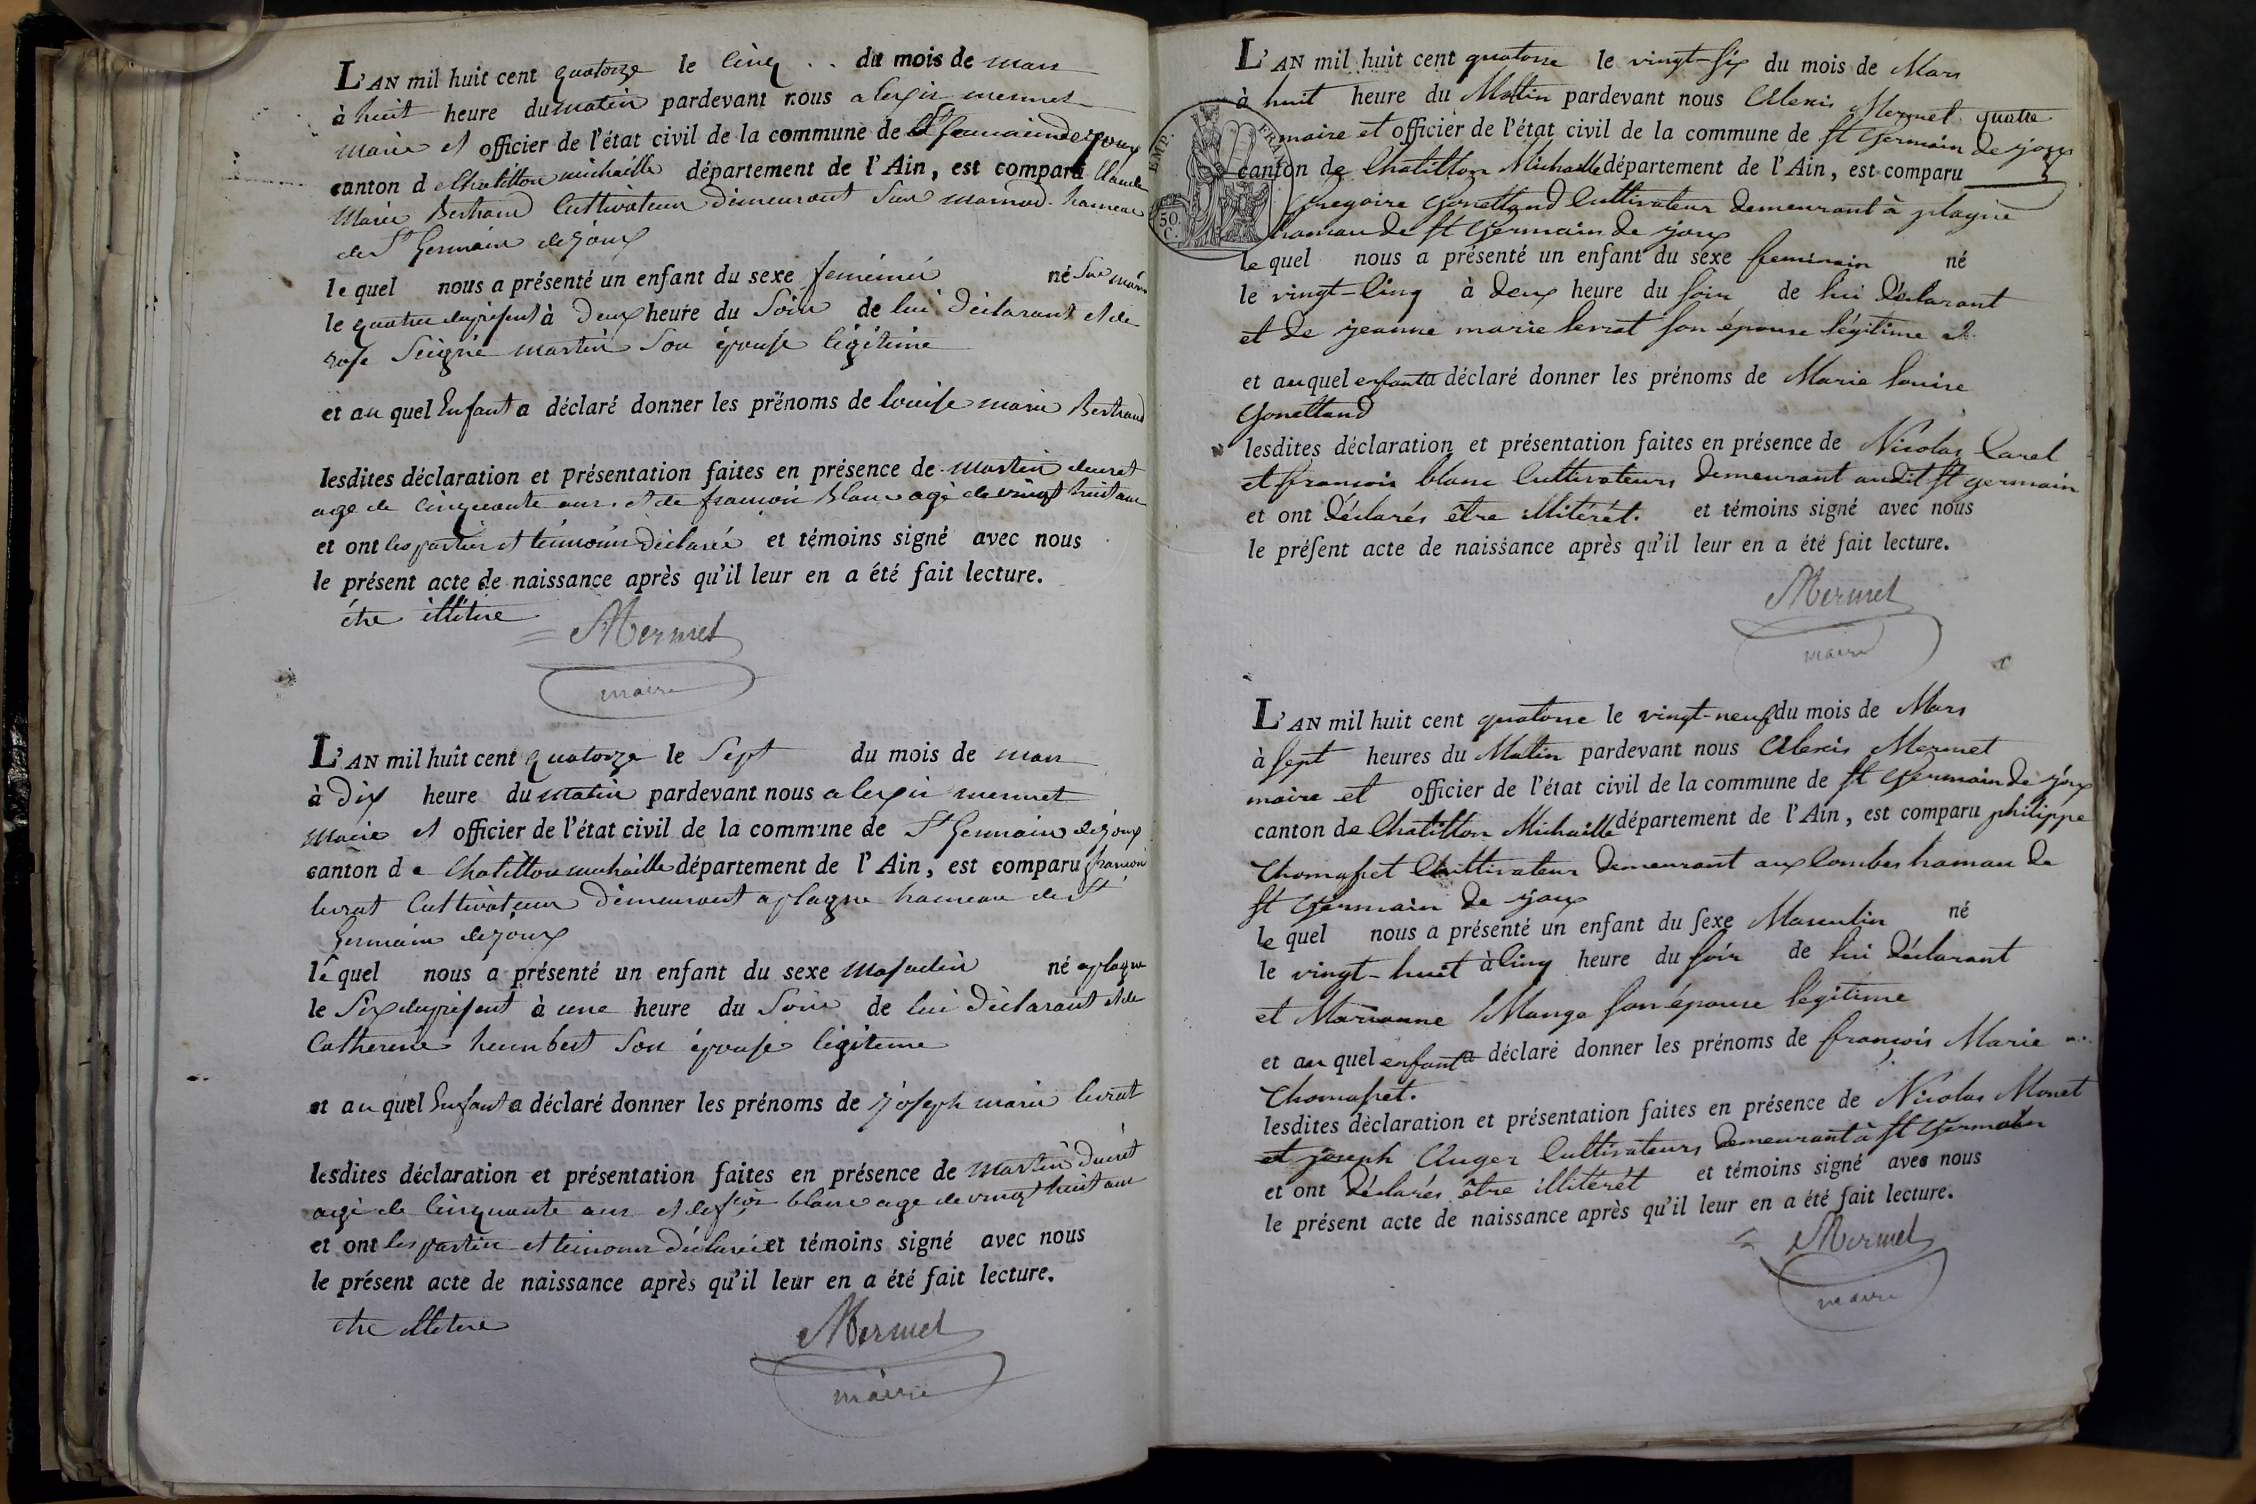 L'AN mil huit cent quatorze le cinq du mois de mars
à huit heure du matin pardevant nous alexis mermet
maire et officier de l'état civil de la commune de St germain de joux
canton de Chatillon michaille département de l'Ain, est comparu Claude
Marie Bertrand Cultivateur demeurant Sur marnod hameau
de St Germain de joux
le quel nous a présenté un enfant du sexe feminin né Sur
le quatre du présent à Deux heure du Soir de lui déclarant et de
Seigne martin Son épouse légitime
et au quel Enfant a déclaré donner les prénoms de louise marie Bertrand
lesdites déclaration et présentation faites en présence de martin ducret
agé de Cinquante ans et de françois Blanc agé de vingt huit ans
et ont les parties et témoins déclaré et témoins signé avec nous
le présent acte de naissance après qu'il leur en a été fait lecture.
être illitere
Mermet
maire
L'AN mil huit cent quatorze le Sept du mois de mars
à Dix heure du matin pardevant nous alexis mermet
maire et officier de l'état civil de la commune de St Germain de joux
canton de Chatillon michaille département de l'Ain, est comparu françois
livrat Cultivateur demeurant a plagne hameau de St
Germain de joux
le quel nous a présenté un enfant du sexe masculin né a plagne
le Six du présent à une heure du Soir de lui déclarant et de
Catherine humbert Son épouse légitime
et au quel Enfant a déclaré donner les prénoms de joseph marie livrat
lesdites déclaration et présentation faites en présence de martin ducret
agé de Cinquante ans et de fçois blanc agé de vingt huit ans
et ont les parties et témoins déclaré et témoins signé avec nous
le présent acte de naissance après qu'il leur en a été fait lecture.
être illitere
Mermet
maire
EMP. FRAN
50 C.
L'AN mil huit cent quatorse le vingt-six du mois de Mars
à huit heure du Matin pardevant nous Alexis Mermet quatre
maire et officier de l'état civil de la commune de St Germain de joux
canton de Chatillon Michaille département de l'Ain, est comparu
Gregoire Gonettand Cultivateur demeurant à plagne
hamau de St Germain de joux
le quel nous a présenté un enfant du sexe feminain né
le vingt-cinq à deux heure du soir de lui déclarant
et de jeanne marie levrat son épouse légitime et
et au quel enfant a déclaré donner les prénoms de Marie louise
Gonettand
lesdites déclaration et présentation faites en présence de Nicolas Carel
et françois blanc Cultivateurs demeurant audit St germain
et ont déclarés être illitérét. et témoins signé avec nous
le présent acte de naissance après qu'il leur en a été fait lecture.
Mermet
maire
L'AN mil huit cent quatorse le vingt-neuf du mois de Mars
à sept heures du Matin pardevant nous Alexis Mermet
maire et officier de l'état civil de la commune de St Germain de joux
canton de Chatillon Michaille département de l'Ain, est comparu philippe
Thomasset Cultivateur demeurant aux Combes hamau de
St Germain de joux
le quel nous a présenté un enfant du sexe Masculin né
le vingt-huit à cinq heure du soir de lui déclarant
et Marianne Mange son épouse légitime
et au quel enfant a déclaré donner les prénoms de françois Marie
Thomasset.
lesdites déclaration et présentation faites en présence de Nicolas Monet
et joseph Auger Cultivateurs demeurant à St Germain
et ont déclarés être illitérét et témoins signé avec nous
le présent acte de naissance après qu'il leur en a été fait lecture.
Mermet
maire